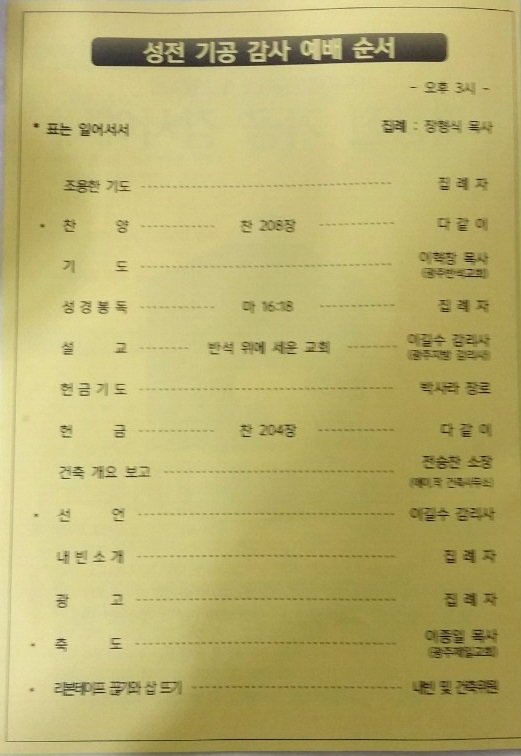 성전 기공 감사 예배 순서
- 오후 3시 -
* 표는 일어서서 집례 : 장형식 목사
조용한 기도 집 례 자
* 찬 양 찬 208장 다 같 이
기 도 이혁창 목사
(광주반석교회)
성 경 봉 독 마 16:18 집 례 자
설 교 반석 위에 세운 교회 이길수 감리사
(광주지방 감리사)
헌 금 기 도 박사라 장로
헌 금 찬 204장 다 같 이
건축 개요 보고 전승찬 소장
건축사무소)
* 선 언 이길수 감리사
내 빈 소 개 집 례 자
광 고 집 례 자
* 축 도 이종일 목사
(광주제일교회)
* 리본테이프 끊기와 삽 뜨기 내빈 및 건축위원